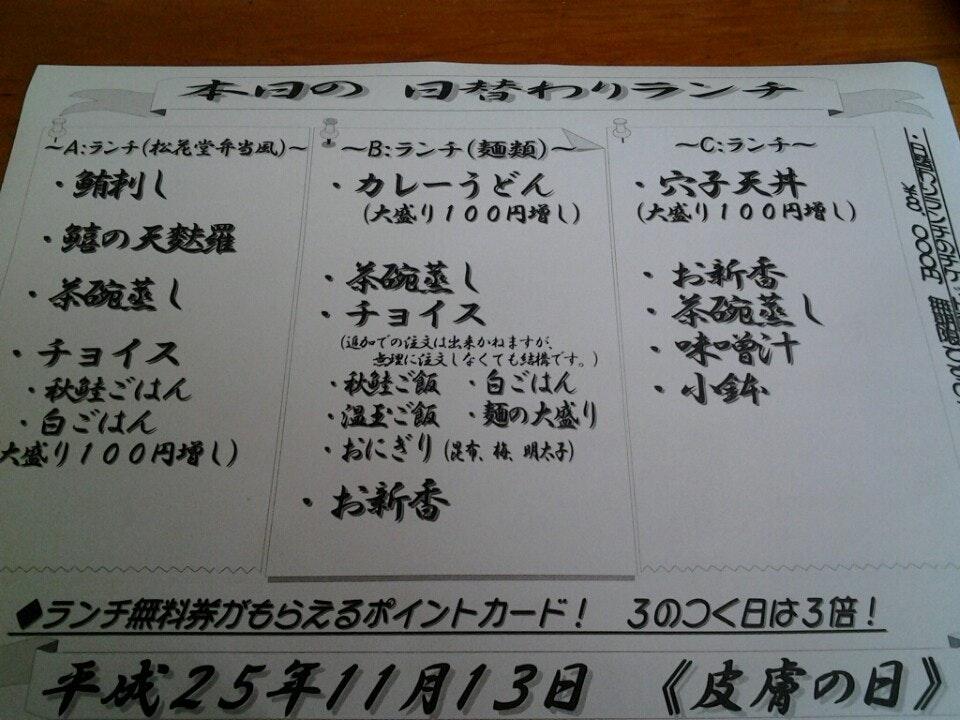 本日の 日替わりランチ
～A:ランチ(松花堂弁当風)～
・鮪刺し
・鱚の天麩羅
・茶碗蒸し
・チョイス
・秋鮭ごはん
・白ごはん
大盛り100円増し)
～B:ランチ(麺類)～
・カレーうどん
(大盛り100円増し)
・茶碗蒸し
・チョイス
(追加での注文は出来かねますが、
無理に注文しなくても結構です。)
・秋鮭ご飯 ・白ごはん
・温玉ご飯 ・麺の大盛り
・おにぎり(昆布、梅、明太子)
・お新香
～C:ランチ～
・穴子天丼
(大盛り100円増し)
・お新香
・茶碗蒸し
・味噌汁
・小鉢
◆ランチ無料券がもらえるポイントカード! 3のつく日は3倍!
平成25年11月13日 《皮膚の日》